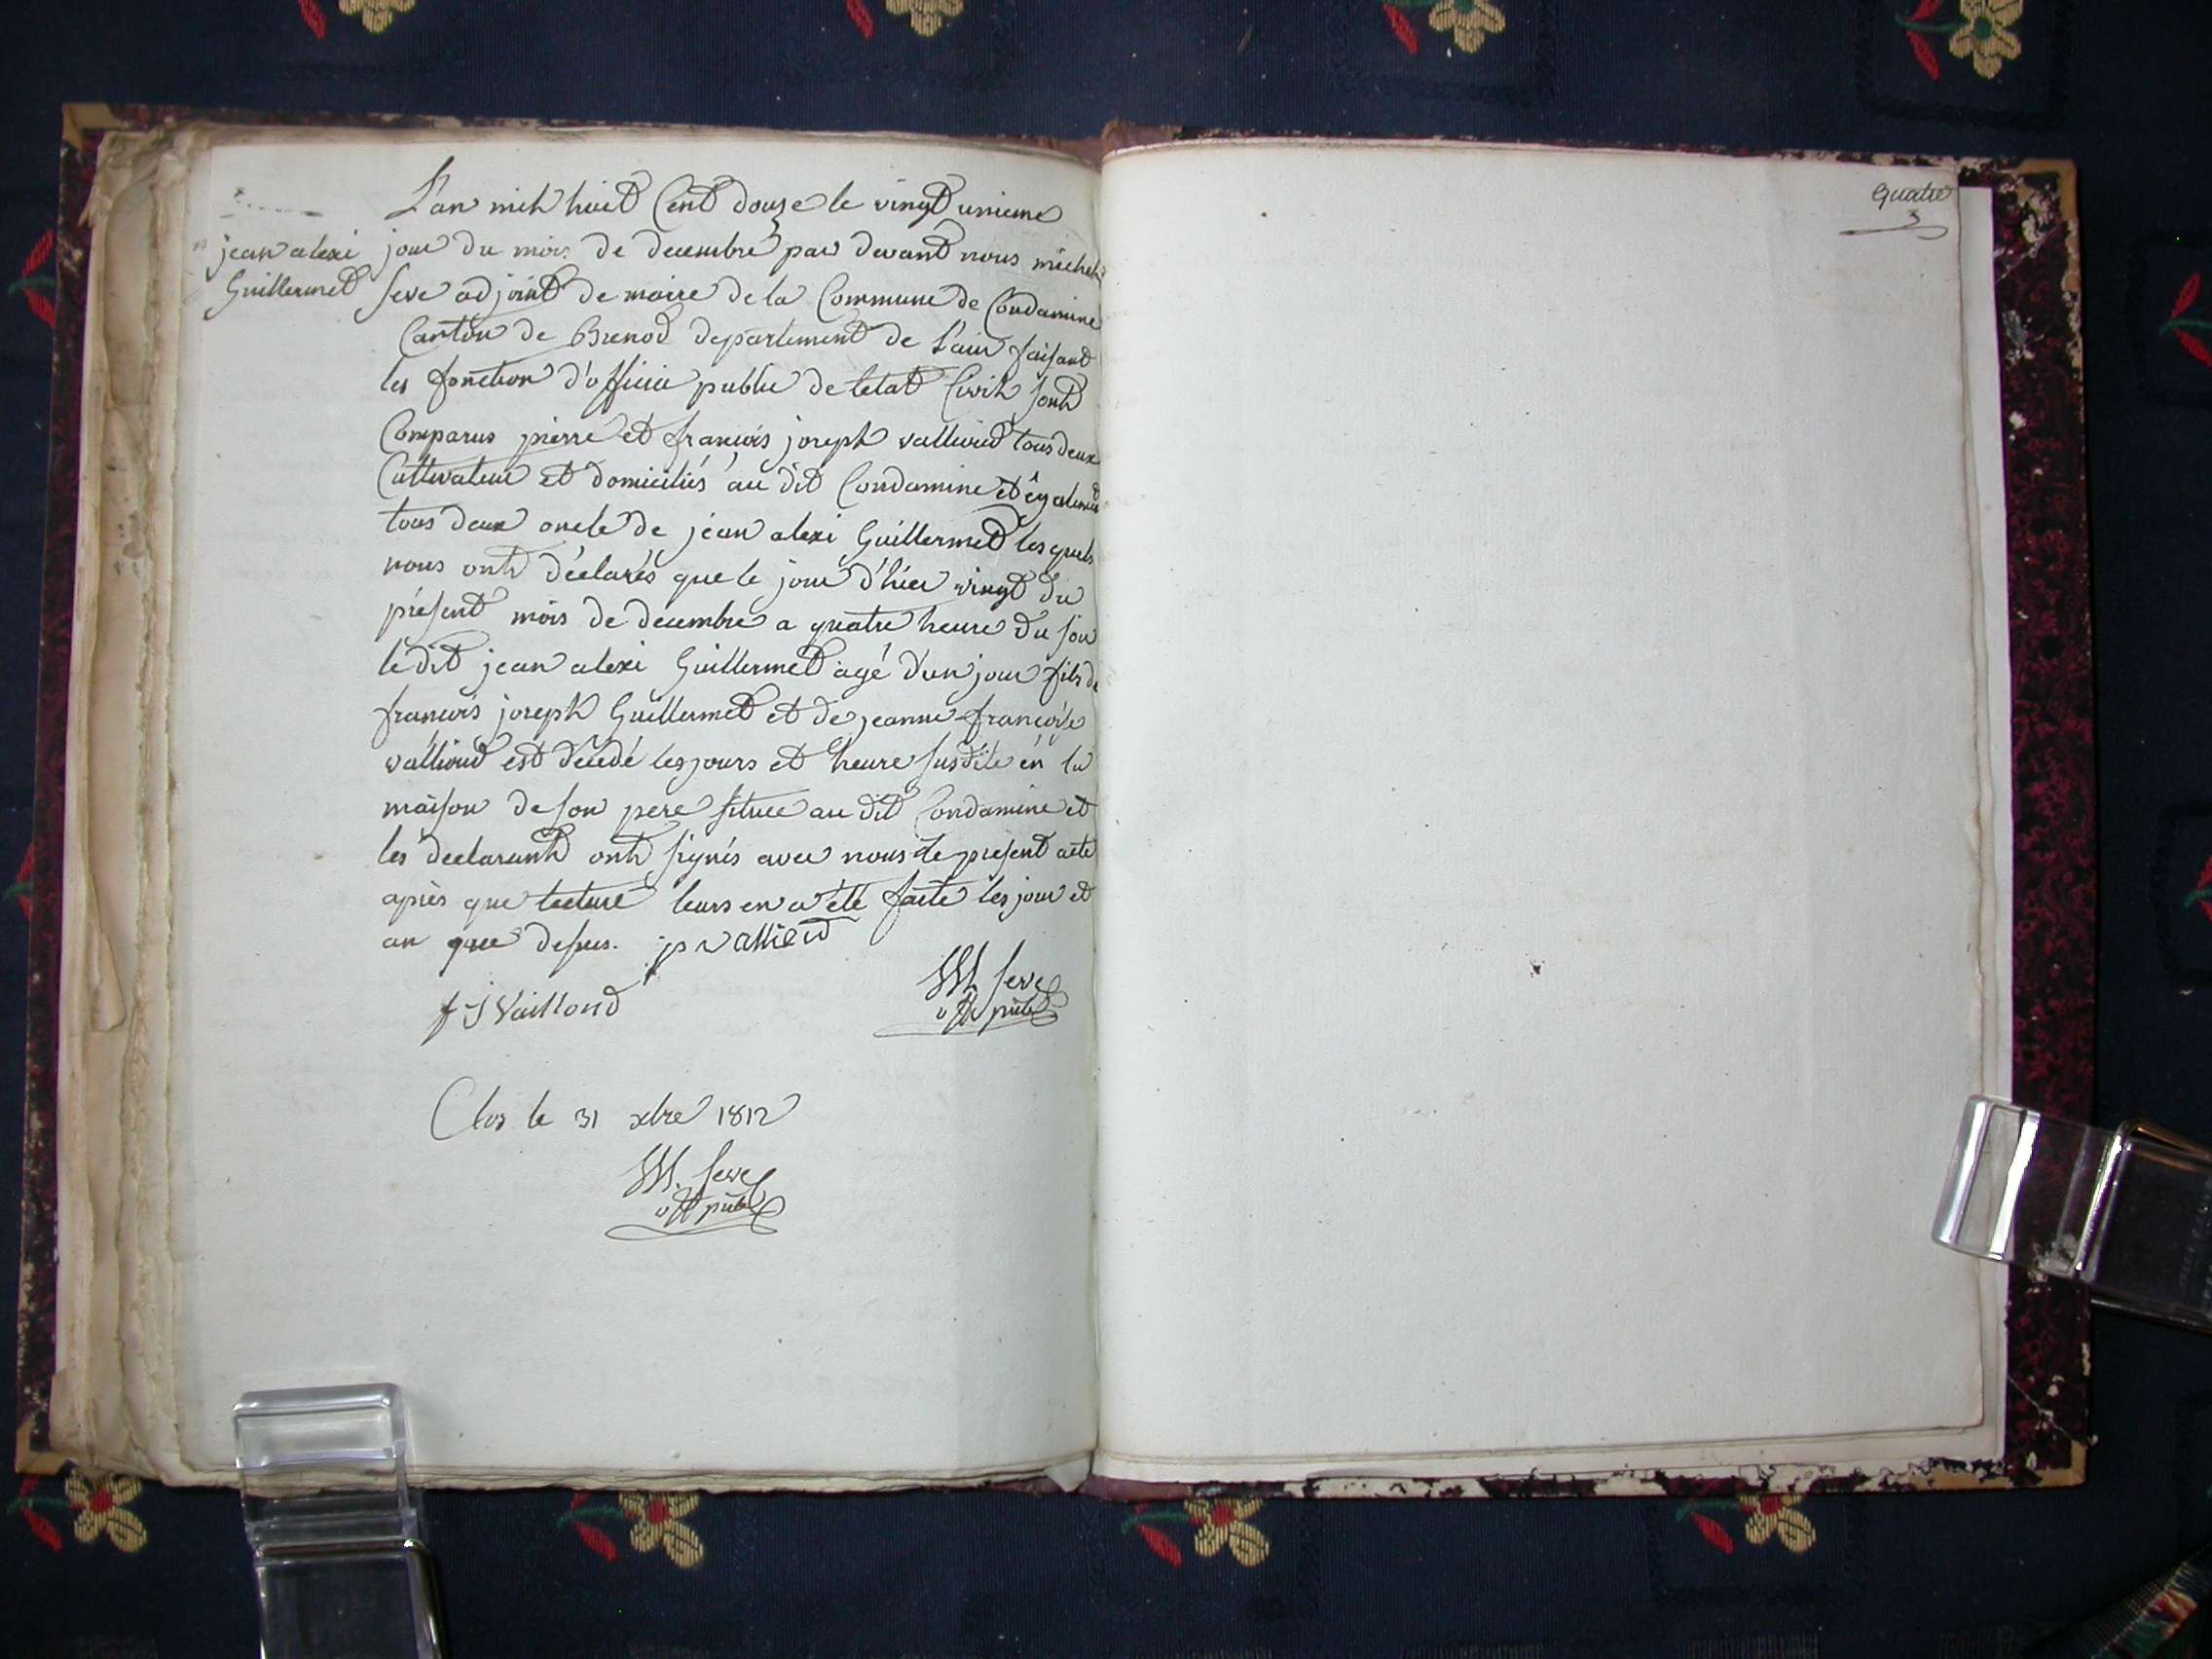 jean alexi
Guillermet
L'an mil huit Cent douze le vingt unieme
jour du mois de decembre par devant nous michel
seve adjoint de maire de la Commune de Condamine
Canton de Brenod departement de L'ain faisant
les fonction d'officie public de letat Civil sont
Comparus pierre et francois joseph vallioud tous deux
Cultivateur et domiciliés au dit Condamine et égalemt
tous deux oncle de jean alexi Guillermet lesquels
nous ont déclarés que le jour d'hier vingt du
présent mois de decembre a quatre heure du soir
ledit jean alexi Guillermet agé d'un jour fils de
francois joseph Guillermet et de jeanne francoise
vallioud est décédé les jours et heure susdite en la
maison de son pere située au dit Condamine et
les declarant ont signés avec nous le présent acte
après que lecture leurs en a été faite les jour et
an que dessus. p vallioud
f J Vailloud
M. seve
off public
Clos le 31 xbre 1812
M. seve
off public
Quatre